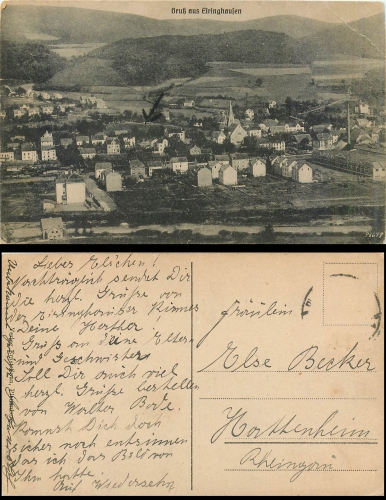 Gruß aus Eiringhausen
Lieber Elschen!
Nachträglich sendet Dir
die herzl. Grüße von
der Eiringhauser Kirmes
Deine Hertha.
Gruß an deine Eltern
Geschwister
Soll Dir auch viel
herzl. Grüße bestellen
von Walter Bode.
Kannst Dich doch
sicher noch entsinnen
das ich das Bild von
Ihm hatte.
Auf Wiedersehn
Fräulein
Else Becker
Hattenheim
Rheingau